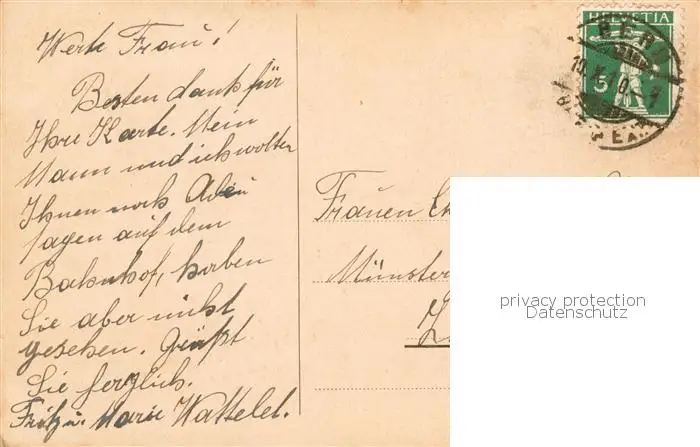 Werte Frau!
Besten dank für
Ihre Karte. Mein
Mann und ich wollten
Ihnen noch Adieu
sagen auf dem
Bahnhof, haben
Sie aber nicht
gesehen. Grüßt
Sie herzlich.
Fritz u. Marie Wattelet.
HELVETIA
BERN
5
10. X. 10
Frauen
Münster
privacy protection
Datenschutz